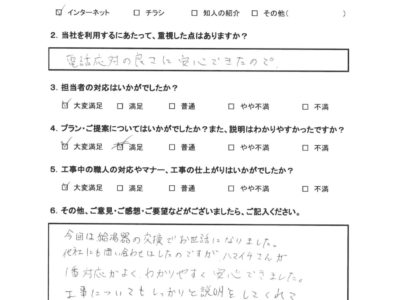 ☑ インターネット □ チラシ □ 知人の紹介 □ その他( )
2. 当社を利用するにあたって、重視した点はありますか?
電話応対の良さに安心できたので.
3. 担当者の対応はいかがでしたか?
☑ 大変満足 □ 満足 □ 普通 □ やや不満 □ 不満
4. プラン・ご提案についてはいかがでしたか?また、説明はわかりやすかったですか?
☑ 大変満足 ☑ 満足 □ 普通 □ やや不満 □ 不満
5. 工事中の職人の対応やマナー、工事の仕上がりはいかがでしたか?
☑ 大変満足 □ 満足 □ 普通 □ やや不満 □ 不満
6. その他、ご意見・ご感想・ご要望などがございましたら、ご記入ください。
今回は給湯器の交換でお世話になりました。
他社にも問い合わせはしたのですが ハマイケさんが
1番対応がよく わかりやすく 安心できました。
工事についてもしっかりと説明をしてくれて